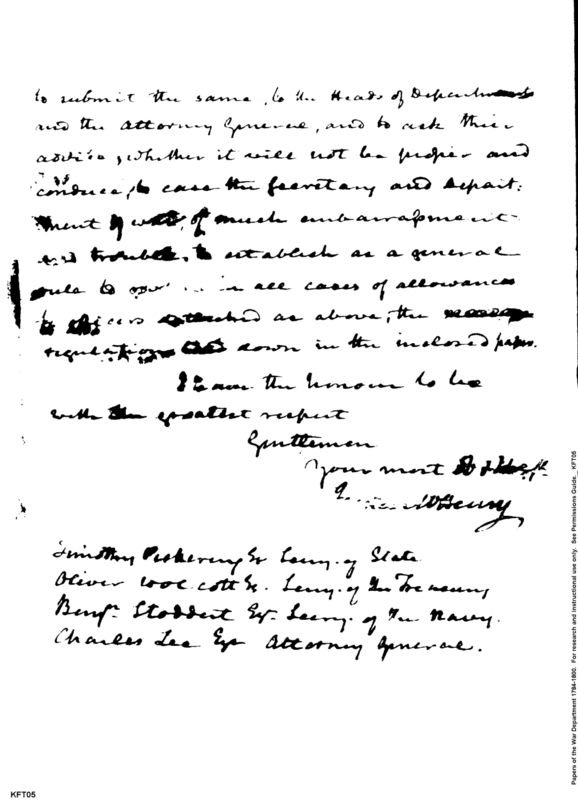 to submit the same, to the Heads of Departments
and the Attorney General, and to ask their
advice, whether it will not be proper and
conduce, to ease the Secretary and Depart:
ment of war, of much embarrassment
and trouble, to establish as a general
rule to in all cases of allowances
to officers attached as above, the
regulations down in the inclosed paper.
I have the honour to be
with the greatest respect
Gentlemen
Your most
McHenry
Timothy Pickering Esr Secry. of State
Oliver Wolcott Es. Secry. of the Treasury
Benjn. Stoddert Esr. Secry. of the Navy.
Charles Lee Esqr Attorney General.
KFT05
Papers of the War Department 1784-1800. For research and instructional use only. See Permissions Guide__KFT05